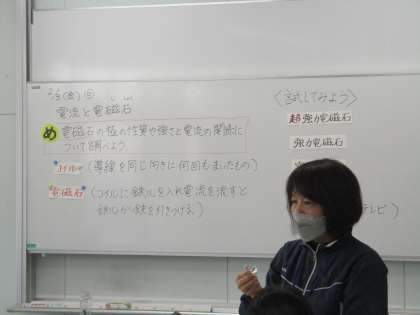 2/5(金)⑤
電流と電磁石
め 電磁石の極の性質や強さと電流の関係に
ついて調べよう。
コイル (導線を同じ向きに何回もまいたもの)
電磁石 (コイルに鉄心を入れ電流を流すと
鉄心が鉄を引きつける)
〈試してみよう〉
超強力電磁石
強力電磁石
テレビ)